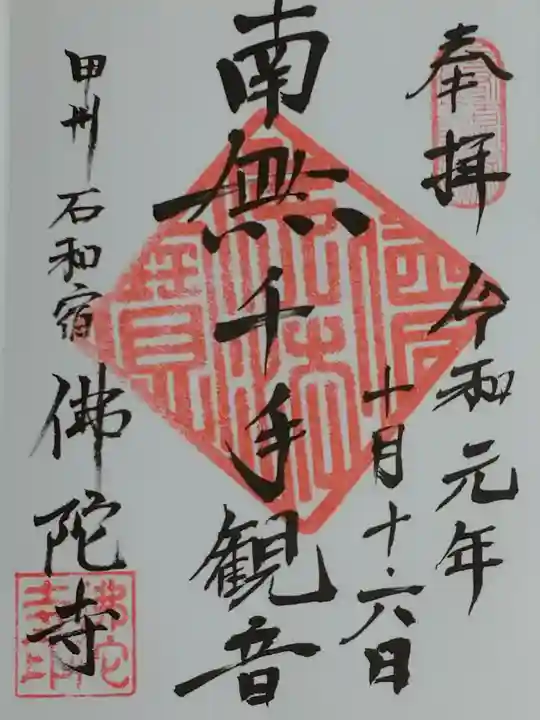 奉拝 令和元年
十月十六日
南無千手観音
甲州石和宿 佛陀寺